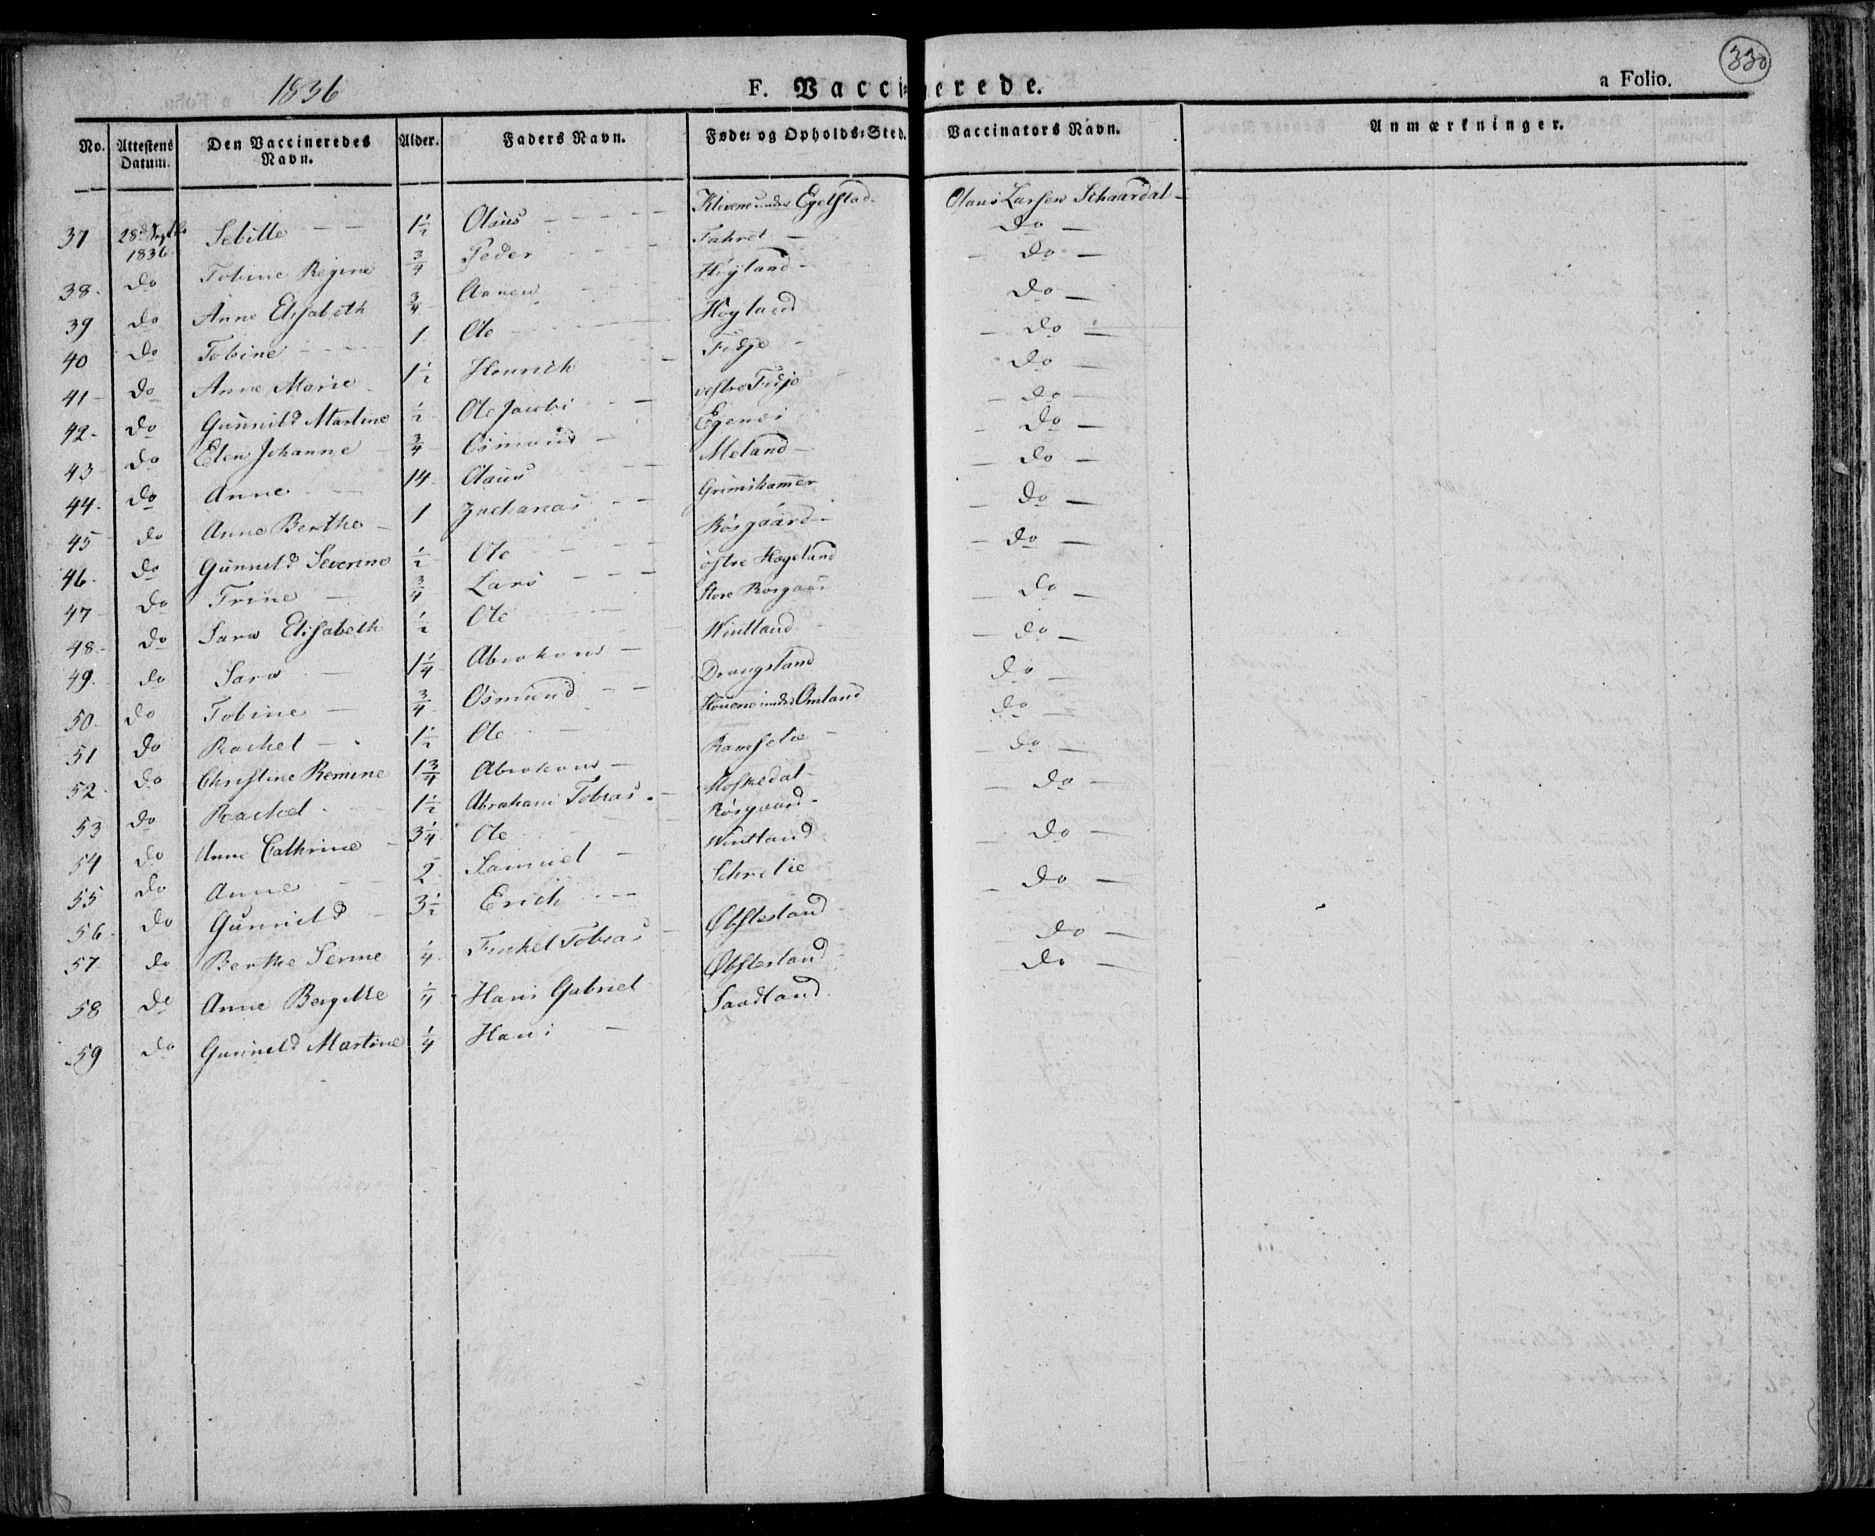 1836 F. Vaccinerede. a Folio. 330
No. Attestens Datum. Den Vaccineredes Navn. Alder. Faders Navn. Føde- og Opholds-Sted. Vaccinators Navn. Anmærkninger.
37 28d Septbr 1836 Sebille 1 1/2 Olaus Klevene under Egelstad Olaus Larsen Schaardal
38 do Tobine Regine 3/4 Peder Fahret do
39 do Anne Elisabeth 3/4 Aanen Høyland do
40 do Tobine 1 Ole Høyland do
41 do Anne Marie 1 1/2 Henrich Fidje do
42 do Gunnild Martine 1/2 Ole Jacobs vestre Fidje do
43 do Elen Johanne 3/4 Osmund Egenes do
44 do Anne 14 Olaus Meland do
45 do Anne Berthe 1 Zacharias Grimshammer do
46 do Gunnild Severine 1/2 Ole Røsgaard do
47 do Trine 3/4 Lars østre Hægeland do
48 do Sara Elisabeth 1/2 Ole Store Røsgaar do
49 do Sara 1 1/4 Abraham Wintland do
50 do Tobine 3/4 Osmund Drangsland do
51 do Rachel 1 1/2 Ole under Omland do
52 do Christine Remine 1 3/4 Abraham Ramselie do
53 do Rachel 1 1/2 Abraham Tobias Moskedal do
54 do Anne Cathrine 3 1/4 Ole Røsgaard do
55 do Anne 2 Samuel Wintland do
56 do Gunnild 3 1/2 Erich Schrelie do
57 do Berthe Serine 1/4 Tobias Øbstesland do
58 do Anne Bergitte 1/4 Hans Gabriel Øbstesland do
59 do Gunnild Martine 1/4 Hans Saadland